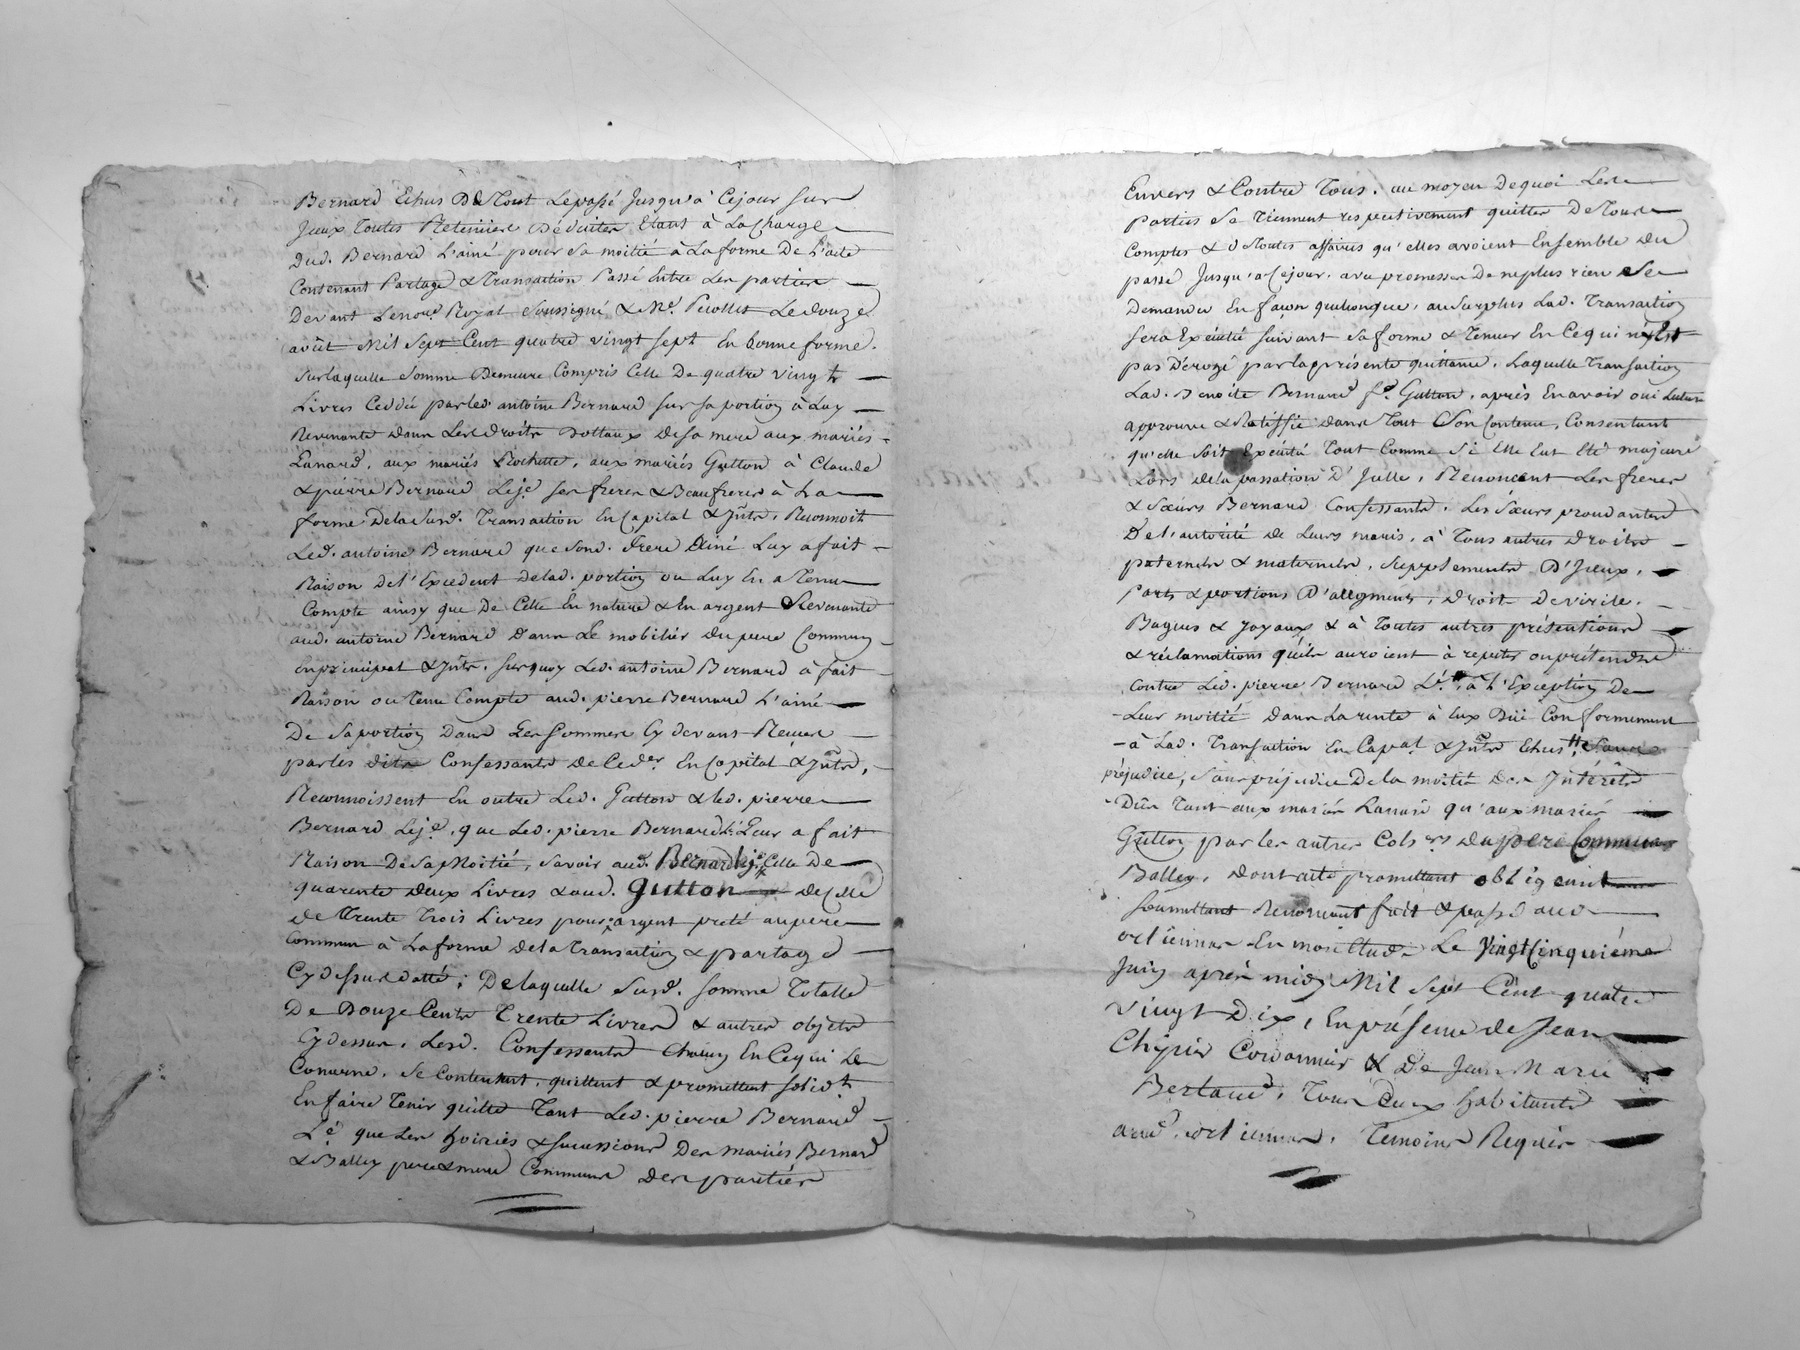 Bernard Echus De Tout Le passé Jusqu'à Cejour sur
Jceux Toutes Retenües déduites Etant à La charge
Dud. Bernard L'ainé pour Sa moitié à La forme De L'acte
Contenant Partage & Transaction Passé Entre Les parties
Devant Le no.re Royal Soussigné & M.e Le douze
août Mil Sept Cent quatre vingt sept En bonne forme.
Sur laquelle Somme Demeure Compris Celle De quatre vingt
Livres Ceddée par led. antoine Bernard sur sa portion à Luy
Revenante dans Les droits Dottaux De sa mere aux mariés
Lanard, aux mariés Rochette, aux mariés Gutton à Claude
& pierre Bernard Le je. ses freres & Beaufreres à La
forme De la Susd. Transaction En Capital & Jnts. Reconnoit
Led. antoine Bernard que Sond. frere Ainé Luy a fait
Raison de l'Excedent de lad. portion ou Luy En a Tenu
Compte ainsy que De Celle En nature & En argent Revenante
aud. antoine Bernard dans Le mobilier Du pere Commun
En principal & Jnts. sur quoy Led. antoine Bernard à fait
Raison ou Tenu Compte aud. pierre Bernard L'ainé
De Sa portion Dans Les Sommes Cy devant Reçues
par les dits Confessants de Ced.er En Capital & Jnts.
Reconnoissent En outre Led. Gutton & led. pierre
Bernard Le je. que Led. pierre Bernard L'é Leur a fait
Raison De Sa Moitié, Savoir aud. Bernard le je. Celle De
quarente deux Livres & aud. Gutton de Celle
de Trente Trois Livres pour argent preté au pere
Commun à La forme de la Transaction & partage
Cy dessus datté; De laquelle Susd. somme Totalle
De Douze Cents Trente Livres & autres objets
Cy dessus, Lesd. Confessants Chacun En Cequi Le
Concerne, Se Contentent, quittent & promettent solid.t
En faire Tenir quitte Tant Led. pierre Bernard
L'é que Les hoiries & successions Des mariés Bernard
& Balley pere & mere Communs des parties
Envers & Contre Tous. au moyen De quoi Les
parties Se Tiennent respectivement quittes De Tous
Comptes & de Toutes affaires qu'elles avoient Ensemble du
passé Jusqu'a Cejour. avec promesses De ne plus rien Se
Demander En façon quelconque, au Surplus Lad. Transaction
sera Exécutée suivant sa forme & teneur En Cequi n'y Est
pas Dérogé par la présente quittance. Laquelle Transaction
Lad. Benoite Bernard f.e Gutton, après En avoir oui Lecture
approuve & Ratiffie dans Tout Son Contenu, Consentant
qu'elle Soit Exécutée Tout Comme Si Elle Eut Eté majeure
Lors de la passation D'Jcelle, Renoncent Les freres
& Sœurs Bernard Confessants, Les Sœurs procedantes
De l'autorité de Leurs maris, à Tous autres droits
paternels & maternels, Supplements D'Jceux,
Parts & portions D'augments, droit De virile,
Bagues & Joyaux & à Toutes autres prétentions
& réclamations qu'ils auroient à repeter ou prétendre
Contre Led. pierre Bernard L'é, à L'Exception De
Leur moitié dans La rente à Eux Düe Conformement
à Lad. Transaction En Capal. & Jnts Echus, Sans
préjudice, Sans préjudice De la moitié Des Jntérêts
Dûs Tant aux mariés Lanard qu'aux mariés
Gutton par les autres Coh.ers du pere Commun
Balley, Dont acte promettant obligeant
soumettant Renonçant fait & passé aud.
ortiennas En mon Etude Le Vingt Cinquiéme
Juin après midy Mil Sept Cent quatre
vingt Dix, En présence de Jean
Chipier Cordonnier & De Jean Marie
Bertaud, Tous deux habitants
aud. ortiennas, Temoins Requis